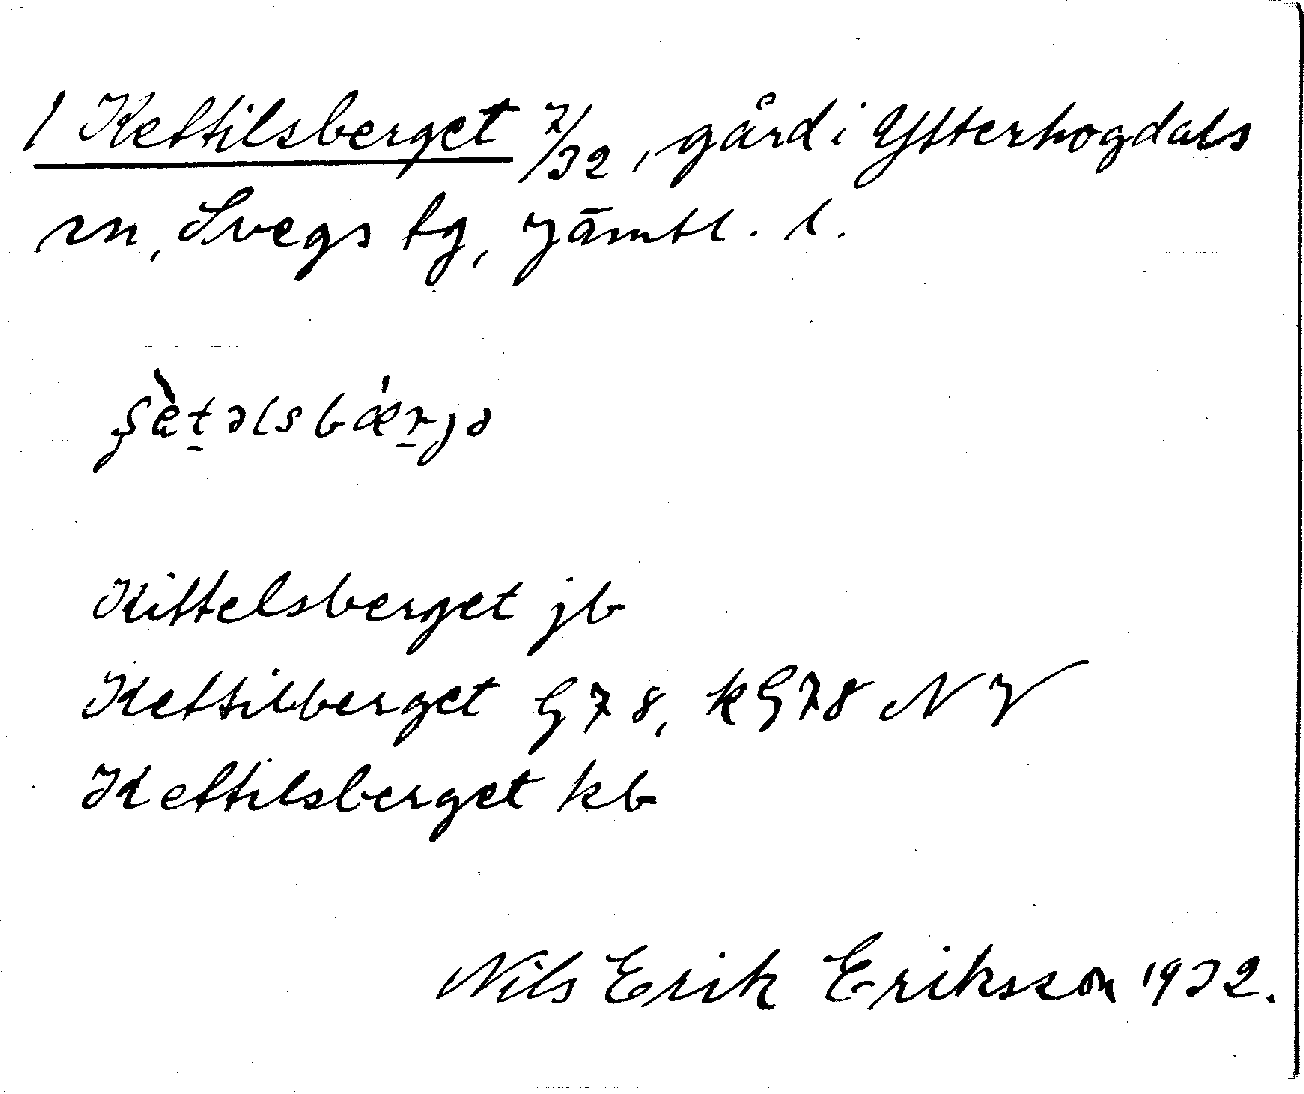 1 Kettilsberget 7/32, gård i Ytterhogdals
sn, Svegs tg, Jämtl. l.
ʂètəlsbǽrjə
Kittelsberget jb
Kettilberget G78, kG78 NV
Kettilsberget kb
Nils Erik Eriksson 1932.